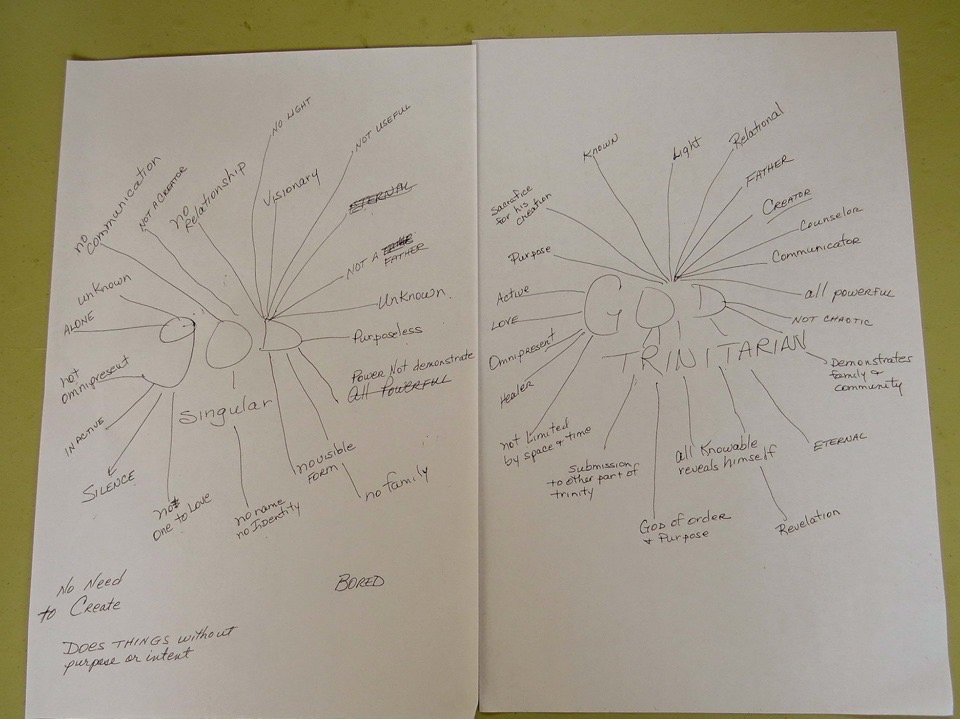 no
communication
NOT A CREATOR
no
Relationship
NO LIGHT
Visionary
NOT USEFUL
ETERNAL
NOT A
FATHER
unknown
ALONE
Unknown.
Purposeless
not
omnipresent
Power Not demonstrate
all Powerful
GOD
Singular
INACTIVE
SILENCE
not
one to Love
no name
no Indentity
no visible
FORM
no family
No Need
to Create
BORED
DOES THINGS without
purpose or intent
KNOWN
Light
Relational
FATHER
CREATOR
Counselor
Communicator
Sacrifice
for his
creation
Purpose
Active
LOVE
Omnipresent
Healer
GOD
TRINITARIAN
all powerful
NOT CHAOTIC
Demonstrates
family &
community
not Limited
by space & time
Submission
to other part of
trinity
all Knowable
reveals himself
ETERNAL
GOD of order
& Purpose
Revelation